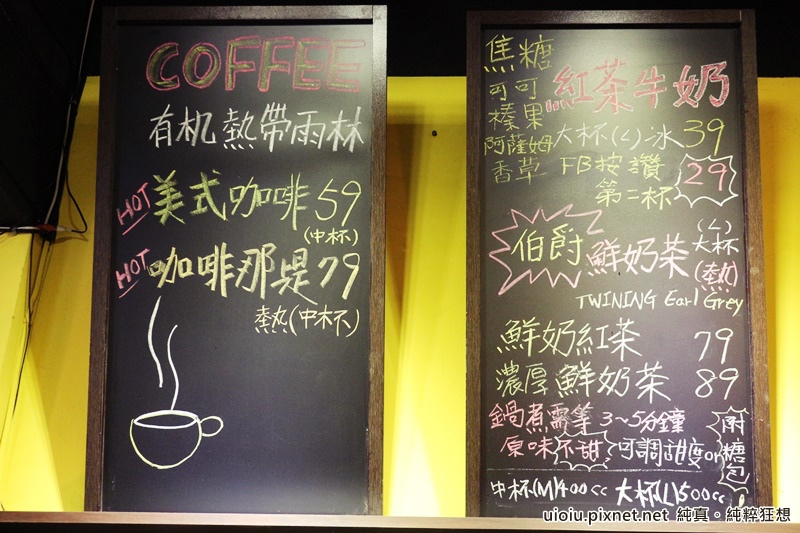 COFFEE
有机熱帶雨林
HOT 美式咖啡 59
(中杯)
HOT 咖啡那是 79
熱(中杯)
焦糖
可可
榛果
阿薩姆
香草
紅茶牛奶
大杯(L)冰 39
FB按讚 29
第二杯
伯爵鮮奶茶
(L)
大杯
(熱)
TWINING Earl Grey
鮮奶紅茶 79
濃厚鮮奶茶 89
鍋煮需等 3~5分鐘
原味不甜 可調甜度or
附糖包
中杯(M)400cc 大杯(L)500cc
uioiu.pixnet.net 純真。純粹狂想